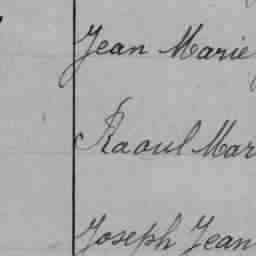 Jean Marie
Raoul Mar
Joseph Jean